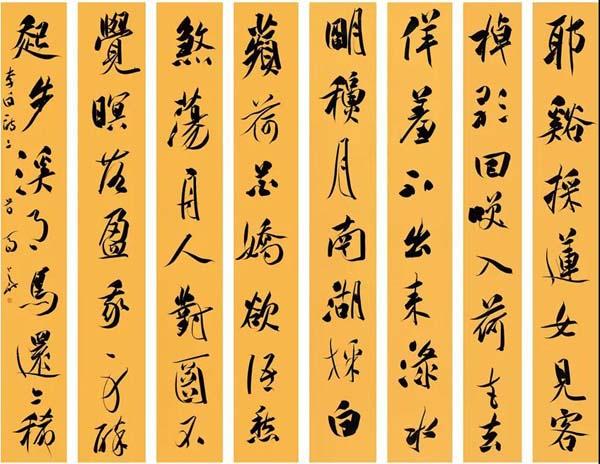 耶谿採蓮女見客
棹歌回咲入荷花去
佯羞不出来渌水
朙穐月南湖採白
蘋荷花嬌欲語愁
煞蕩舟人對不
覺暝落盈我衣醉
起步溪月鳥還稀
李白詩二首